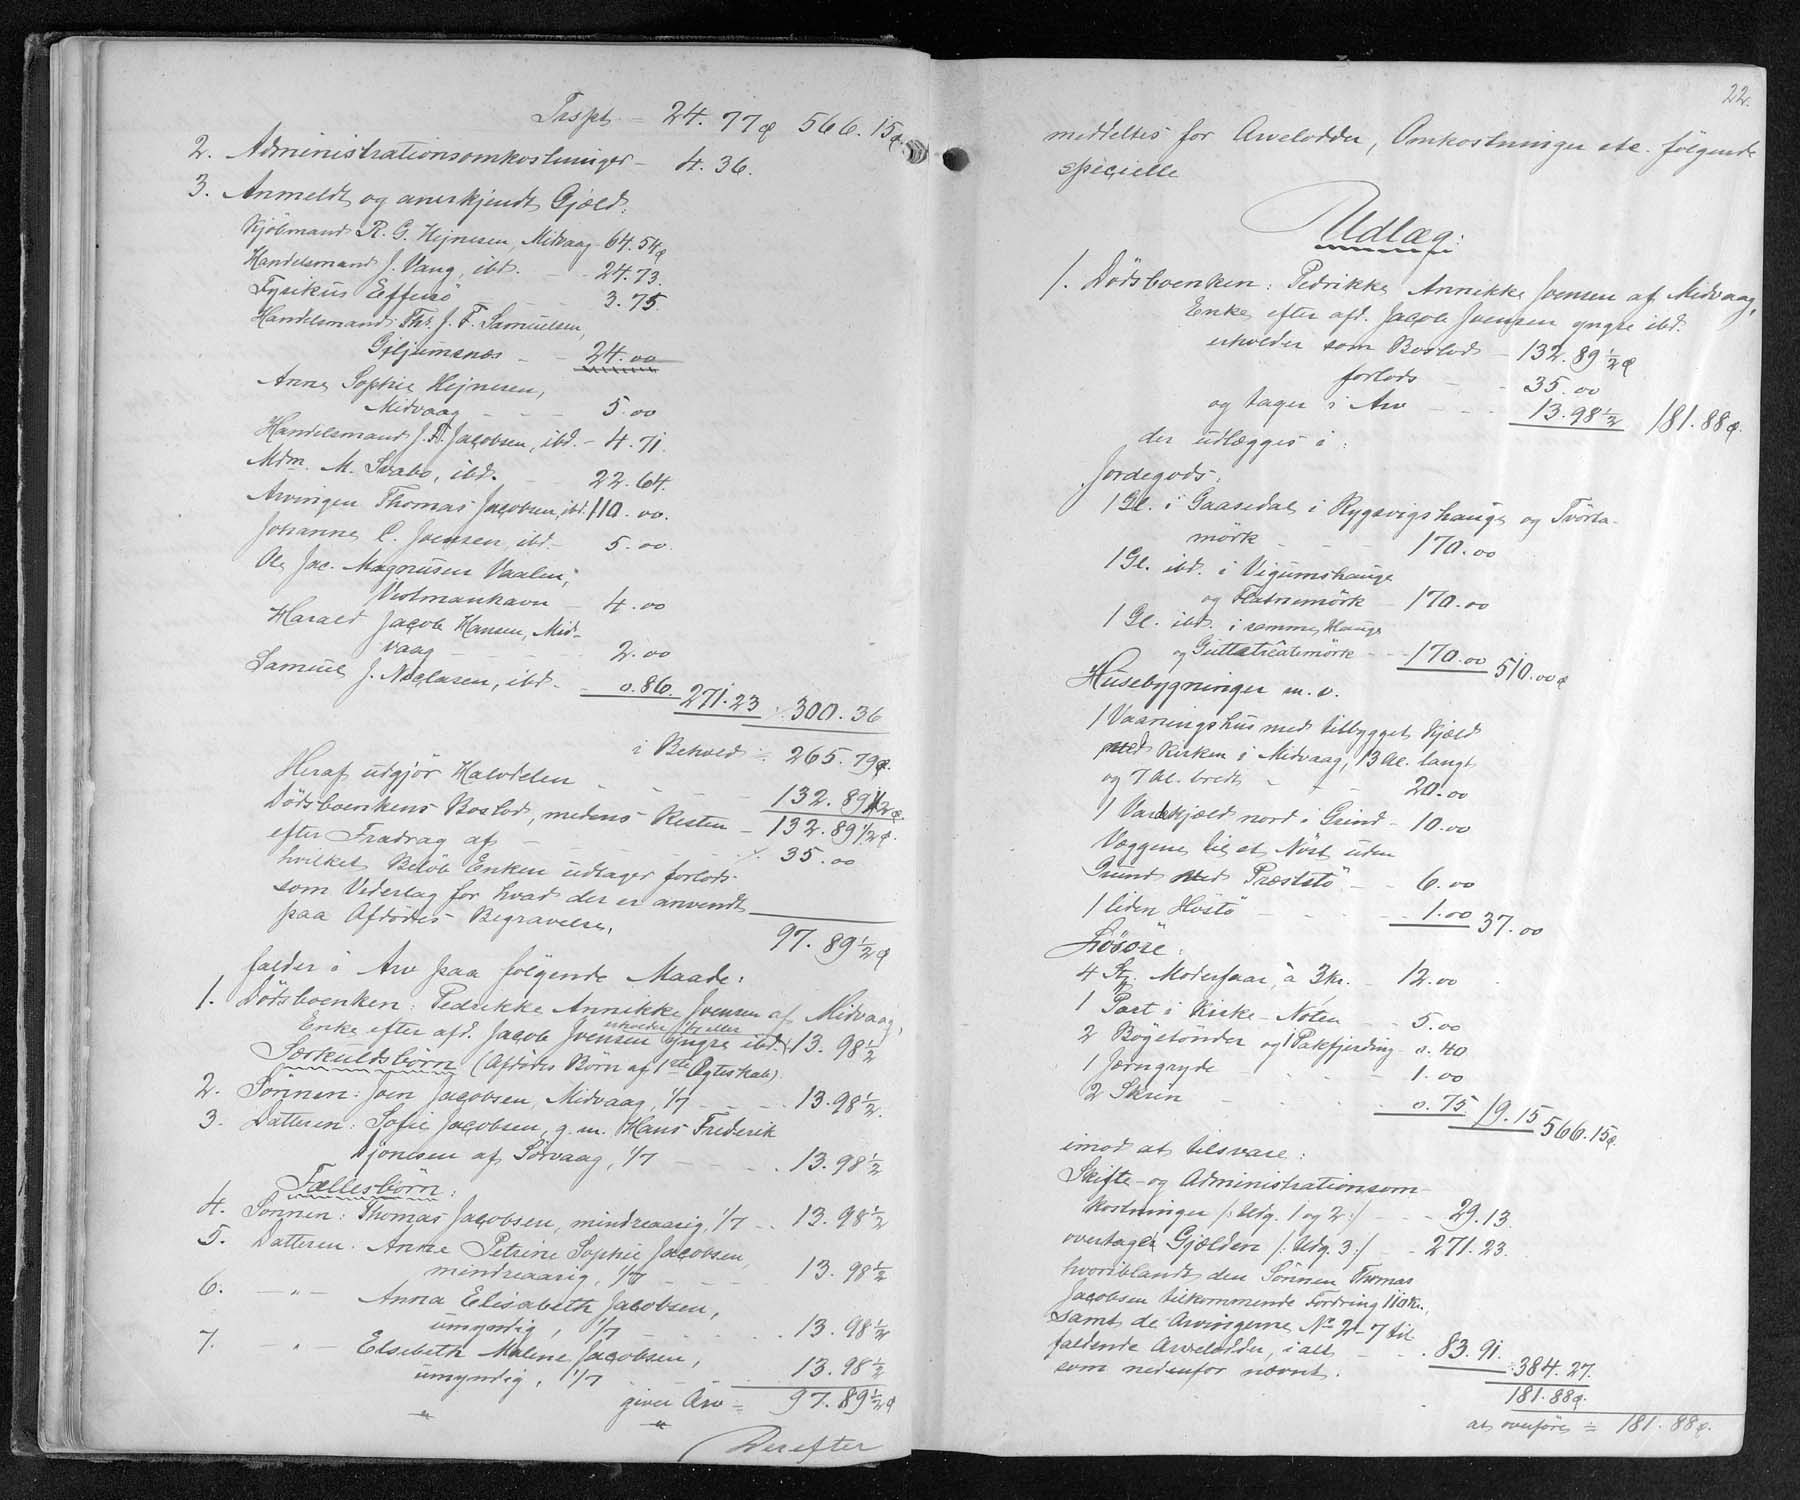 Trspt — 24.77ø 566.15ø.
2. Administrationsomkostninger — 4.36.
3. Anmeldt og anerkjendt Gjæld:
Kjöbmand R. G. Hejnesen, Midvaag 64.54ø
Handelsmand J. Vang, ibd. — - 24.73.
Fysikus Effersö — - 3.75.
Handelsmand Ths. J. F. Samuelsen,
Giljumsnæs - - 24.00
Anne Sophie Hejnesen,
Midvaag - - - 5.00
Handelsmand J. F. Jacobsen, ibd. - 4.71.
Mdm. M. Svabo, ibd. - 22.64.
Arvingen Thomas Jacobsen, ibd. 110.00.
Johanne C. Joensen ibd. - 5.00.
Ole Jac. Magnusen Vaalen,
Vestmanhavn - 4.00
Harald Jacob Hansen, Mid-
vaag - - - 2.00
Samuel J. Niclasen, ibd. - 0.86. 271.23 ./. 300.36
i Behold = 265.79ø.
Heraf udgjör Halvdelen - - - 132.89 1/2ø.
Dödsboenkens Boslod, medens Resten - 132.89 1/2ø.
efter Fradrag af - - - ./. 35.00
hvilket Belöb Enken udtager forlods
som Vederlag for hvad der er anvendt
paa Afdödes Begravelse,
97.89 1/2ø
falder i Arv paa fölgende Maade:
1. Dödsboenken: Pedrikke Annikke Joensen af Midvaag,
Enke efter afd. Jacob Joensen yngre ibd. erholder 1/7 eller 13.98 1/2
Særkuldsbörn (Afdödes Börn af 1ste Ægteskab).
2. Sönnen: Joen Jacobsen, Midvaag, 1/7 - - . 13.98 1/2.
3. Datteren: Sofie Jacobsen, g. m. Hans Frederik
Djonesen af Sörvaag, 1/7 - - - . 13.98 1/2
Fællesbörn:
4. Sönnen: Thomas Jacobsen, mindreaarig, 1/7 - . 13.98 1/2
5. Datteren: Anne Petrine Sophie Jacobsen,
mindreaarig, 1/7 - - - 13.98 1/2
6. - " - Anna Elisabeth Jacobsen,
umyndig, 1/7 - - - . 13.98 1/2
7. - " - Elsebeth Malene Jacobsen,
umyndig, 1/7 - - . 13.98 1/2
giver Arv = 97.89 1/2ø
" "
Derefter
22.
meddeltes for Arvelodder, Omkostninger etc. fölgende
specielle
Udlæg:
1. Dödsboenken: Pedrikke Annikke Joensen af Midvaag,
Enke efter afd. Jacob Joensen yngre ibd.
erholder som Boslod - 132.89 1/2ø
forlods - - 35.00
og tager i Arv - - - 13.98 1/2 181.88ø.
der udlægges i:
Jordegods:
1 Gl. i Gaasedal i Rygsvigshauge og Tvörla-
mörk - - - 170.00
1 Gl. ibd. i Vigumshauge
og Flatnemörk - 170.00
1 Gl. ibd. i samme Hauge
og mörk - - 170.00 510.00ø
Husebygninger m. v.
1 Vaaningshus med tilbygget Kjæld
ved Kirken i Midvaag, 13 Al. langt
og 7 Al. bredt - - - 20.00
1 Kjæld nord i Grind - 10.00
Væggene til et Nöst uden
Grund ved Præststö - - 6.00
1 liden Hostö - - - - 1.00 37.00
Lösöre:
4 Stk. Moderfaar, à 3 kr. - 12.00
1 Part i Kirke-Noten - - 5.00
2 Bögetönder og 1 Pakfjerding - 0.40
1 Jerngryde - - - 1.00
2 Skrin - - - - 0.75 19.15 566.15ø.
imod at tilsvare:
Skifte- og Administrationsom-
kostninger /: Udg. 1 og 2 :/ - - 29.13.
overtager Gjælden /: Udg. 3 :/ - - 271.23.
hvoriblandt den Sönnen Thomas
Jacobsen tilkommende Fordring 110 Kr.,
samt de Arvingerne No 2-7 til-
faldende Arvelodder, ialt - - . 83.91. 384.27.
som nedenfor nævnt.
181.88ø.
at overföre = 181.88ø.